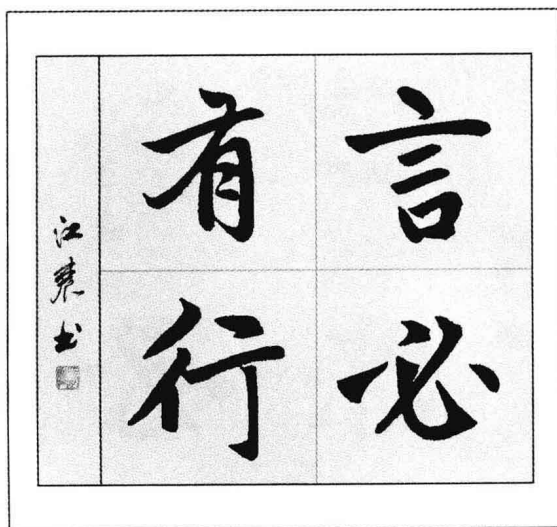 言必
有行
江慧书